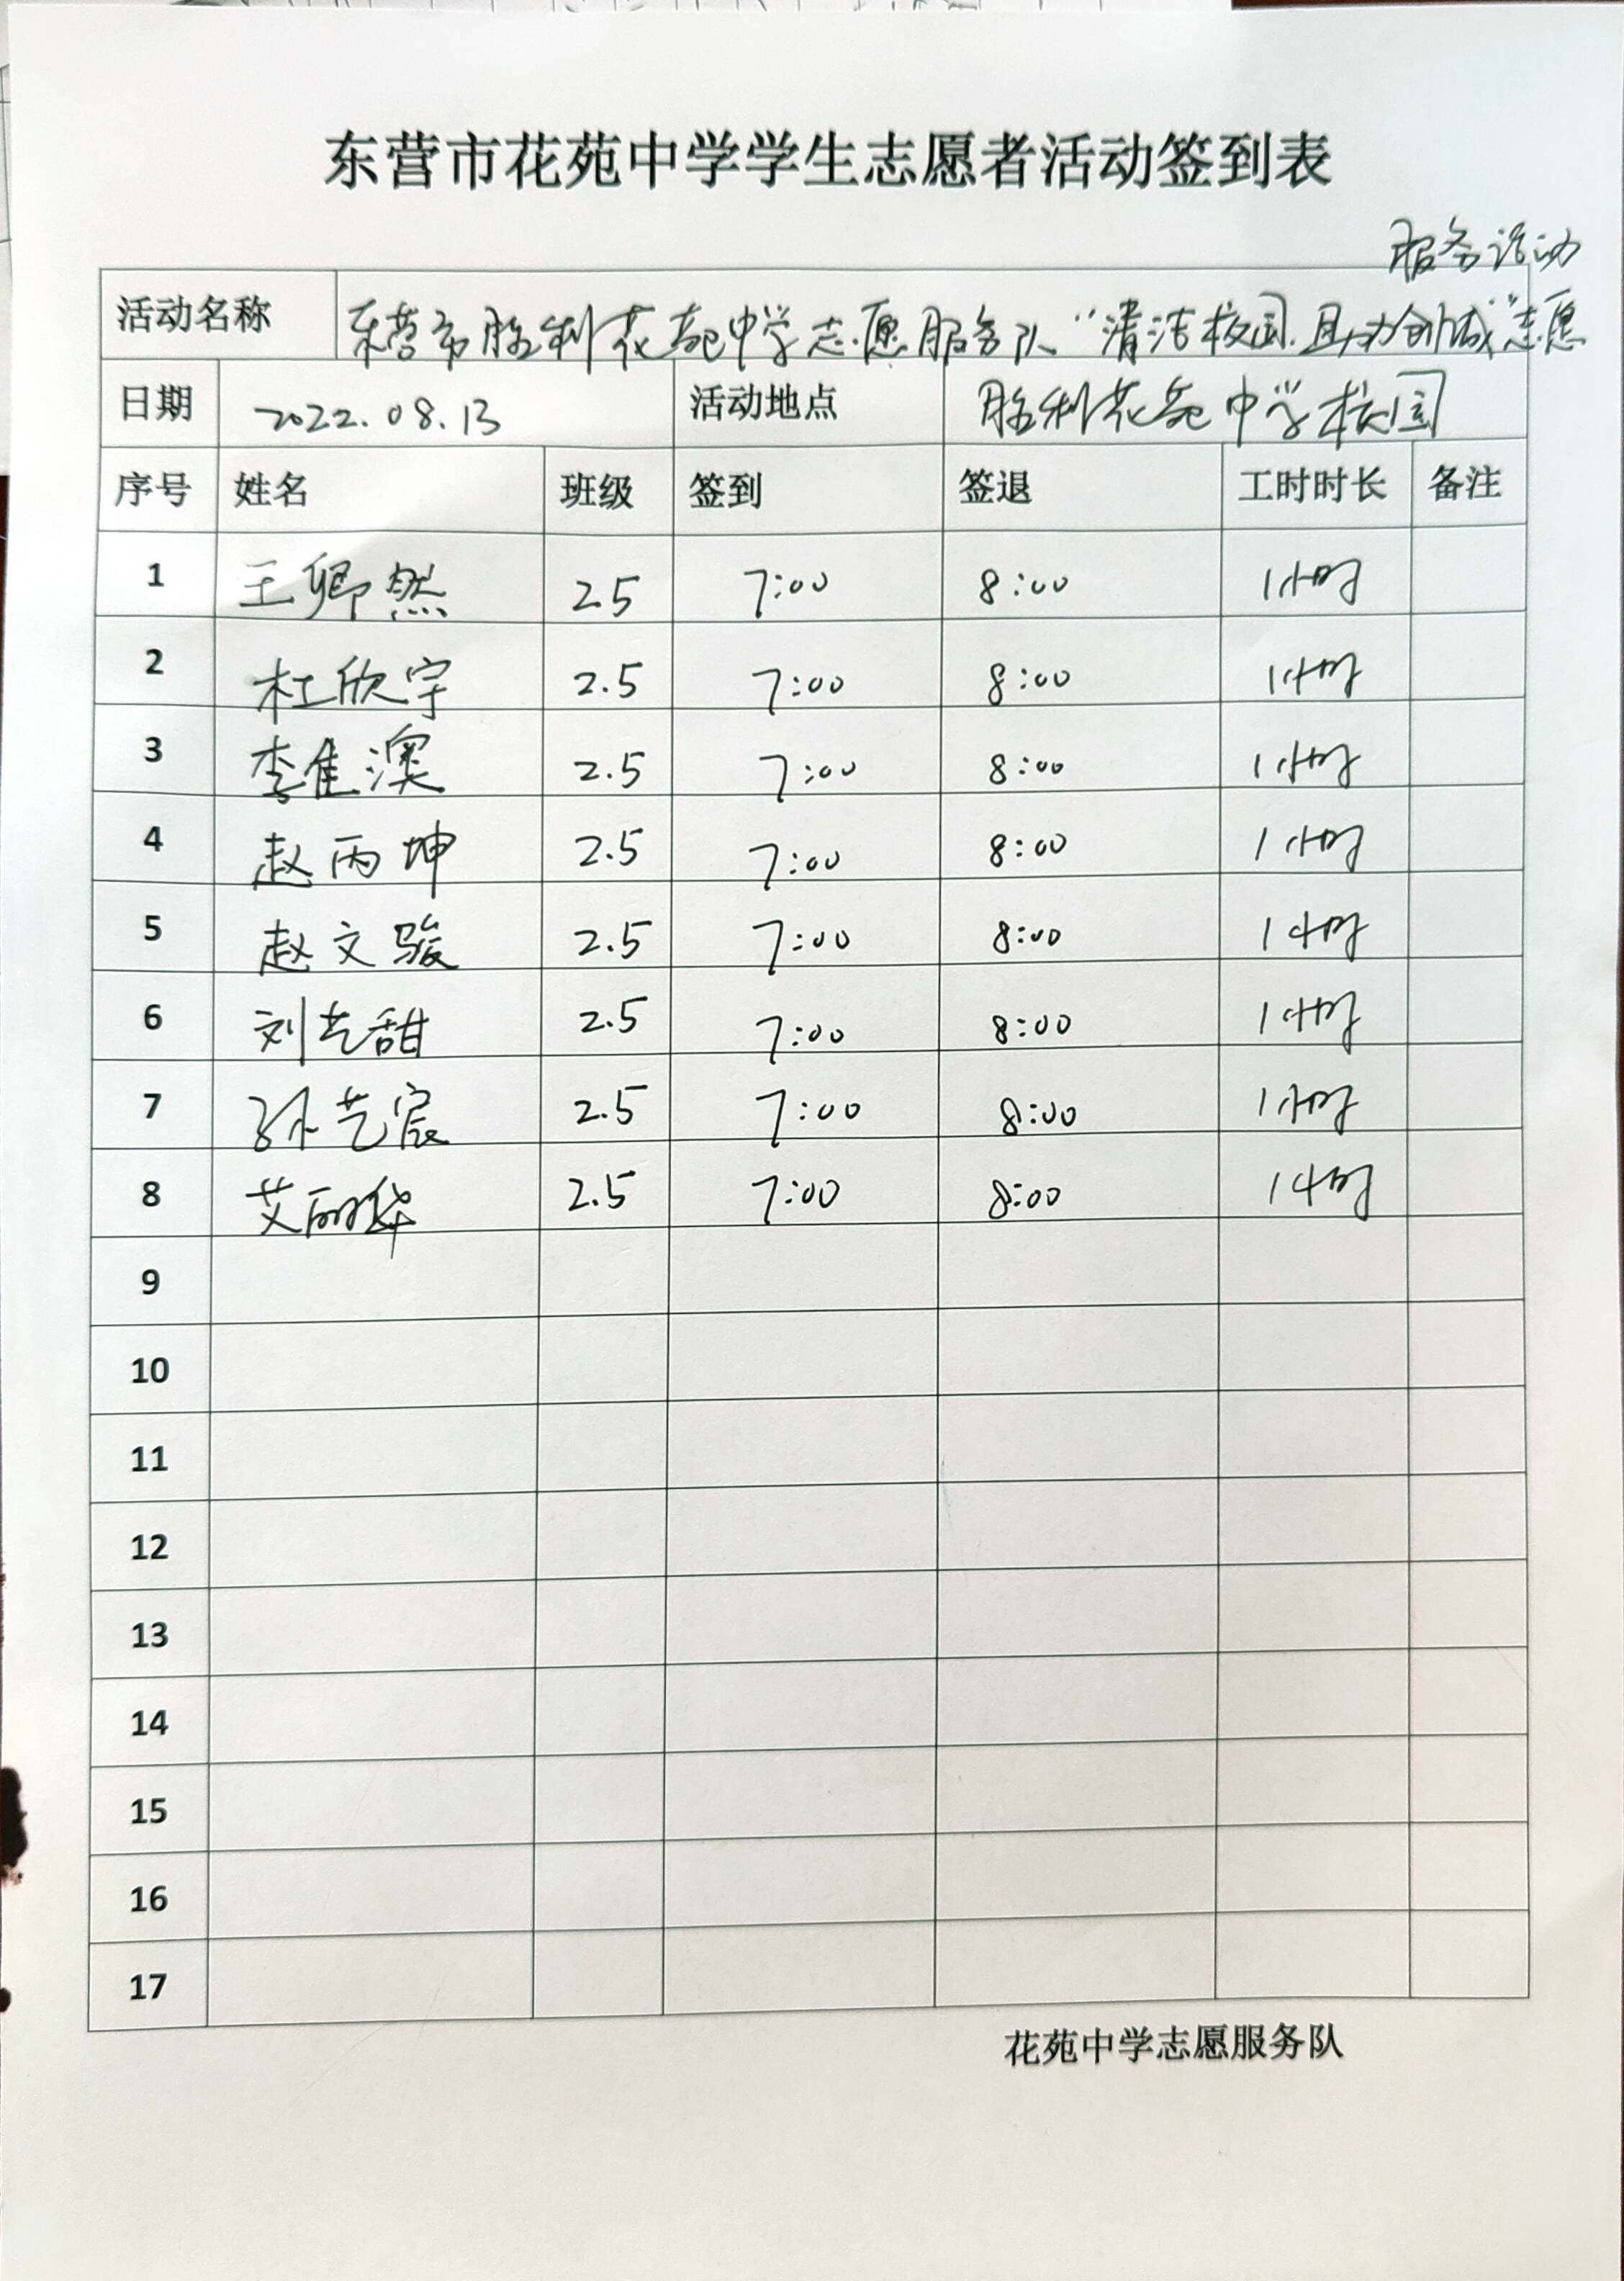 东营市花苑中学学生志愿者活动签到表
服务活动
活动名称 东营市胜利花苑中学志愿服务队“清洁校园.助力创城”志愿
日期 2022.08.13 活动地点 胜利花苑中学校园
序号 姓名 班级 签到 签退 工时时长 备注
1 王卿然 2.5 7:00 8:00 1小时
2 杜欣宇 2.5 7:00 8:00 1小时
3 李隹澳 2.5 7:00 8:00 1小时
4 赵丙坤 2.5 7:00 8:00 1小时
5 赵文骏 2.5 7:00 8:00 1小时
6 刘艺甜 2.5 7:00 8:00 1小时
7 孙艺宸 2.5 7:00 8:00 1小时
8 艾丽华 2.5 7:00 8:00 1小时
9
10
11
12
13
14
15
16
17
花苑中学志愿服务队